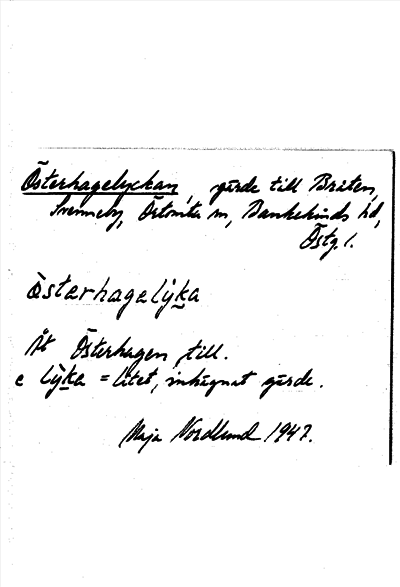 Österhagelyckan, gärde till Bråten,
Svenneby, Örtomta sn, Bankekinds hd,
Östg. l.
österhagelyka
Åt Österhagen till.
e lyka = litet, inhägnat gärde.
Maja Nordlund 1947.